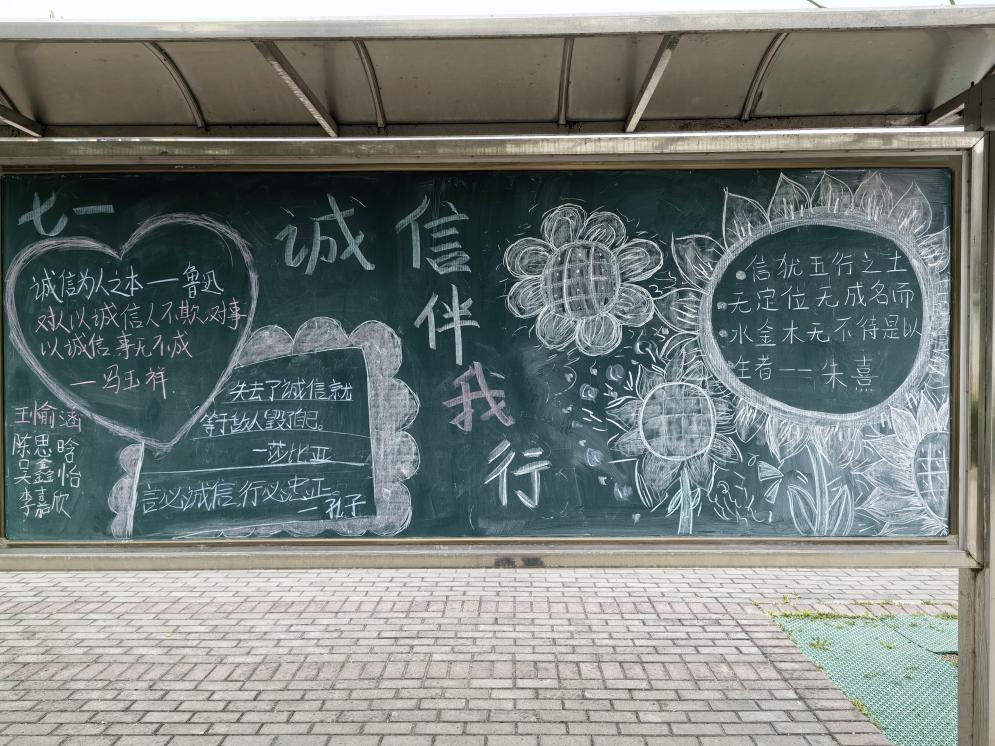 七一
诚信为人之本——鲁迅
对人以诚信人不欺,对事
以诚信事无不成
——冯玉祥
王愉涵
陈思晗
吴鑫怡
李嘉欣
失去了诚信就
等于敌人毁了自己。
—莎比亚
言必诚信行必忠正
—孔子
诚信
伴
我
行
信犹五行之土
无定位无成名而
水金木无不待是以
生者——朱熹